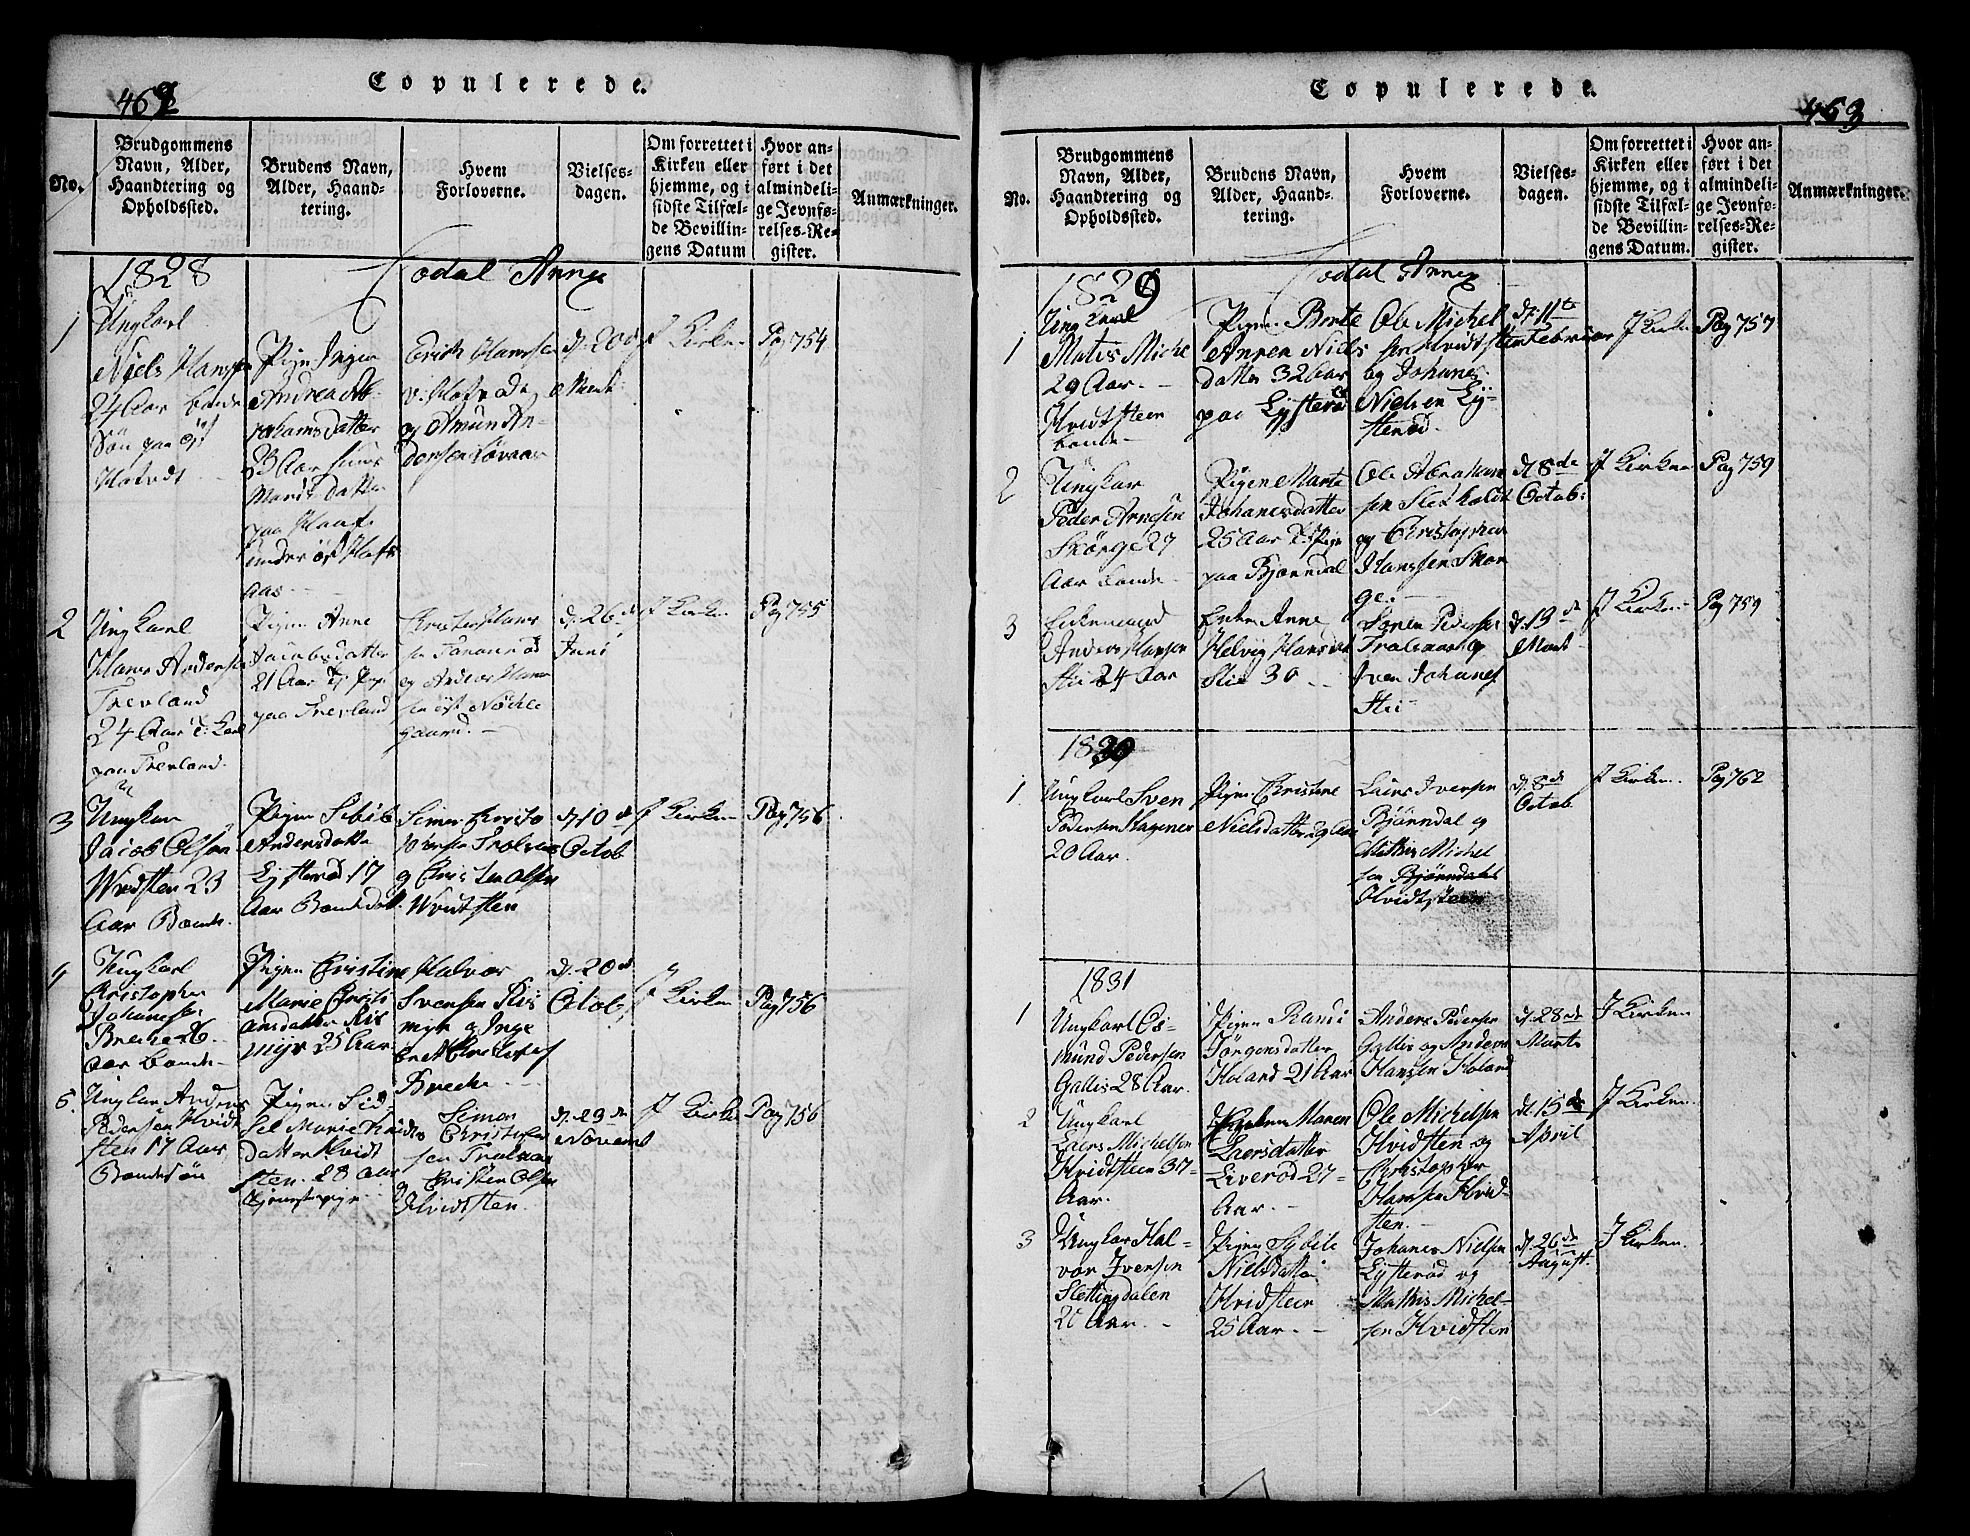 462
Copulerede.
No.
Brudgommens Navn, Alder, Haandtering og Opholdssted.
Brudens Navn, Alder, Haandtering.
Hvem Forloverne.
Vielses-dagen.
Om forrettet i Kirken eller hjemme, og i sidste Tilfælde Bevillingens Datum
Hvor anført i det almindelige Jevnførelses-Register.
Anmærkninger.
1828
Kodal Annex
1
Ungkarl
Niels Hansen
24 Aar bonde
Søn paa
Pigen Inger
Andrea Ab-
rahamsdatter
Erich Hansen
og Amund An-
dersen Løvaas
d. 20de
Kirken
Pag 754
2
Ungkarl
Hans Andersen
Trevland
24 Aar t: Karl
paa Trevland.
Pigen Anne
Jacobsdatter
21 Aar tj. Pige
paa Trevland
og Anders Hans
sen øst Nøkle
gaard.
d. 26de
Juni
Kirken
Pag 755
3
Ungkar
Jacob Olsen
Widsten 23
Aar Bonde.
Pigen Sibile
Andersdatter
Lysterød 17
Aar
Simen Christo
phersen Trolsaas
og Christen Olsen
Hvidtsten
d. 10de
Octob
Kirken
Pag 756
4
Ungkarl
Christopher
Johannesen
Breche 26
Aar bonde
Pigen Christine
Marie Christi
ansdatter Ris
myr 25 Aar.
Halvor
Svensen Ris
myr og Inge
bret Christophs
Breche
d. 20de
Octob
Kirken
Pag 756
5.
Ungkar Anders
Pedersen Hvidt
sten 17 Aar
Bondesøn
Pigen Sid
sel Marie Knuds
datter Hvidt
sten. 28 Aar
tjenestepige
Simon
Christofer
sen Trolsaas
og Christen Olsen
Hvidtsten.
d. 29de
Novemb
Kirken
Pag 756
463
Copulerede.
No.
Brudgommens Navn, Alder, Haandtering og Opholdssted.
Brudens Navn, Alder, Haandtering.
Hvem Forloverne.
Vielses-dagen.
Om forrettet i Kirken eller hjemme, og i sidste Tilfælde Bevillingens Datum.
Hvor anført i det almindelige Jevnførelses-Register.
Anmærkninger.
1829
Kodal Annex
1
Ungkarl
Matis Michel
29 Aar.
Hvidtsteen
bonde
Pigen Berte
Andrea Niels
datter 32 Aar
paa Lysterød
Ole Michel
sen Hvidtsten
og Johanes
Nielsen Ly-
sterød.
d. 11te
Februar
I Kirken
Pag 757
2
Ungkar
Peder Arnesen
Skorge 27
Aar bonde
Pigen Marte
Johanesdatter
25 Aar tj. Pige
paa Bjørndal
Ole Abraham
sen Sletholdt
og Christopher
Hanssen Skor
ge.
d. 8de
Octob:
I Kirken
Pag 759
3
Enkemand
Anders Hansen
Stie 24 Aar
Enken Anne
Helvig Hansdat
Stie 30
Søren Pedersen
Trolsaas og
Iver Johanes
Stie
d. 13de
I Kirken
Pag 759
1830
1
Ungkarl Sven
Pedersen Hagenes
20 Aar.
Pigen Christine
Nielsdatter 29 Aar
Lars Iversen
Bjørndal og
Mathis Michel
sen Bjørndahl
Hvidtsteen
d. 8de
Octob.
I Kirken.
Pag 762
1831
1
Ungkarl Os-
mund Pedersen
Gallis 28 Aar.
Pigen Randi
Jørgensdatter
Holand 21 Aar
Anders Pedersen
Gallis og Anders
Hansen Holand
d. 28de
Marts
I Kirken
2
Ungkarl
Lars Michelsen
Hvidtsteen 37-
Aar.
Maren
Larsdatter
Liverød 27-
Aar.
Ole Michelsen
Hvidsten og
Christopher
Hansen Hvid-
sten.
d. 15de
April
I Kirken.
3
Ungkar Hal-
vor Iversen
Slettingdalen
Aar.
Pigen Sybile
Nielsdatter
Hvidsteen
25 Aar.
Johanes Nielsen
Lysterød og
Mathis Michel-
sen Hvidsten
d. 26de
August.
I Kirken.